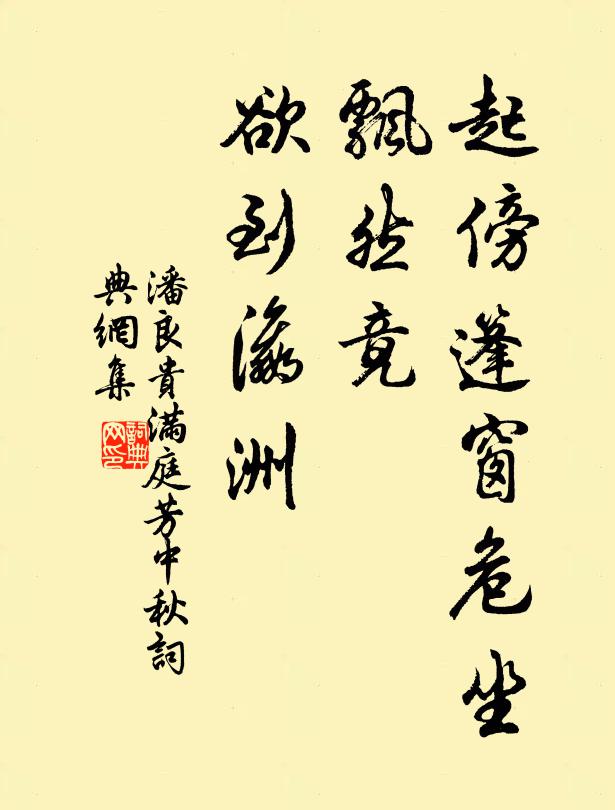 起傍篷窗危坐
飄然竟
欲到瀛洲
潘良貴滿庭芳中秋詞
典網集
詞典
网印